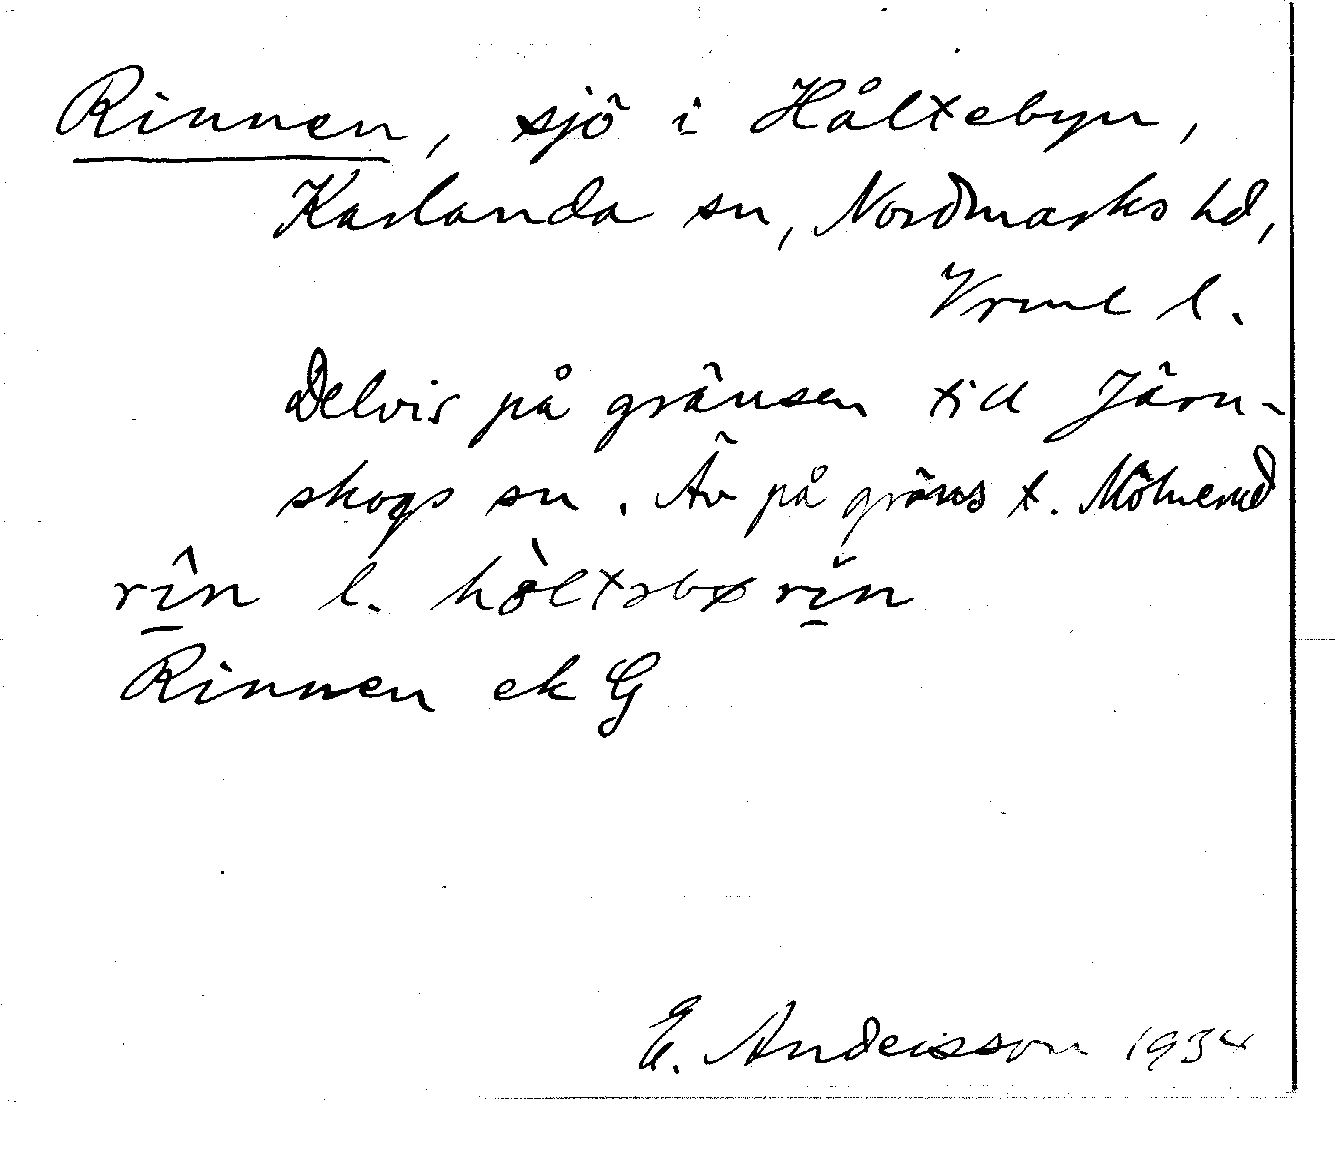 Rinnen, sjö i Håltebyn,
Karlanda sn, Nordmarks hd,
Vrml l.
Delvis på gränsen till Järn-
skogs sn. Äv på gräns t. Mölnerud
rîn l. hòltəbø rin
Rinnen ek G
E. Andersson 1934